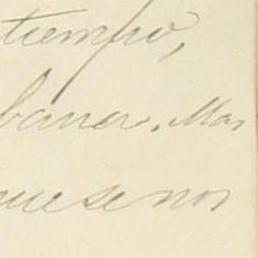 tiempo,
bana. Mas
que se nos